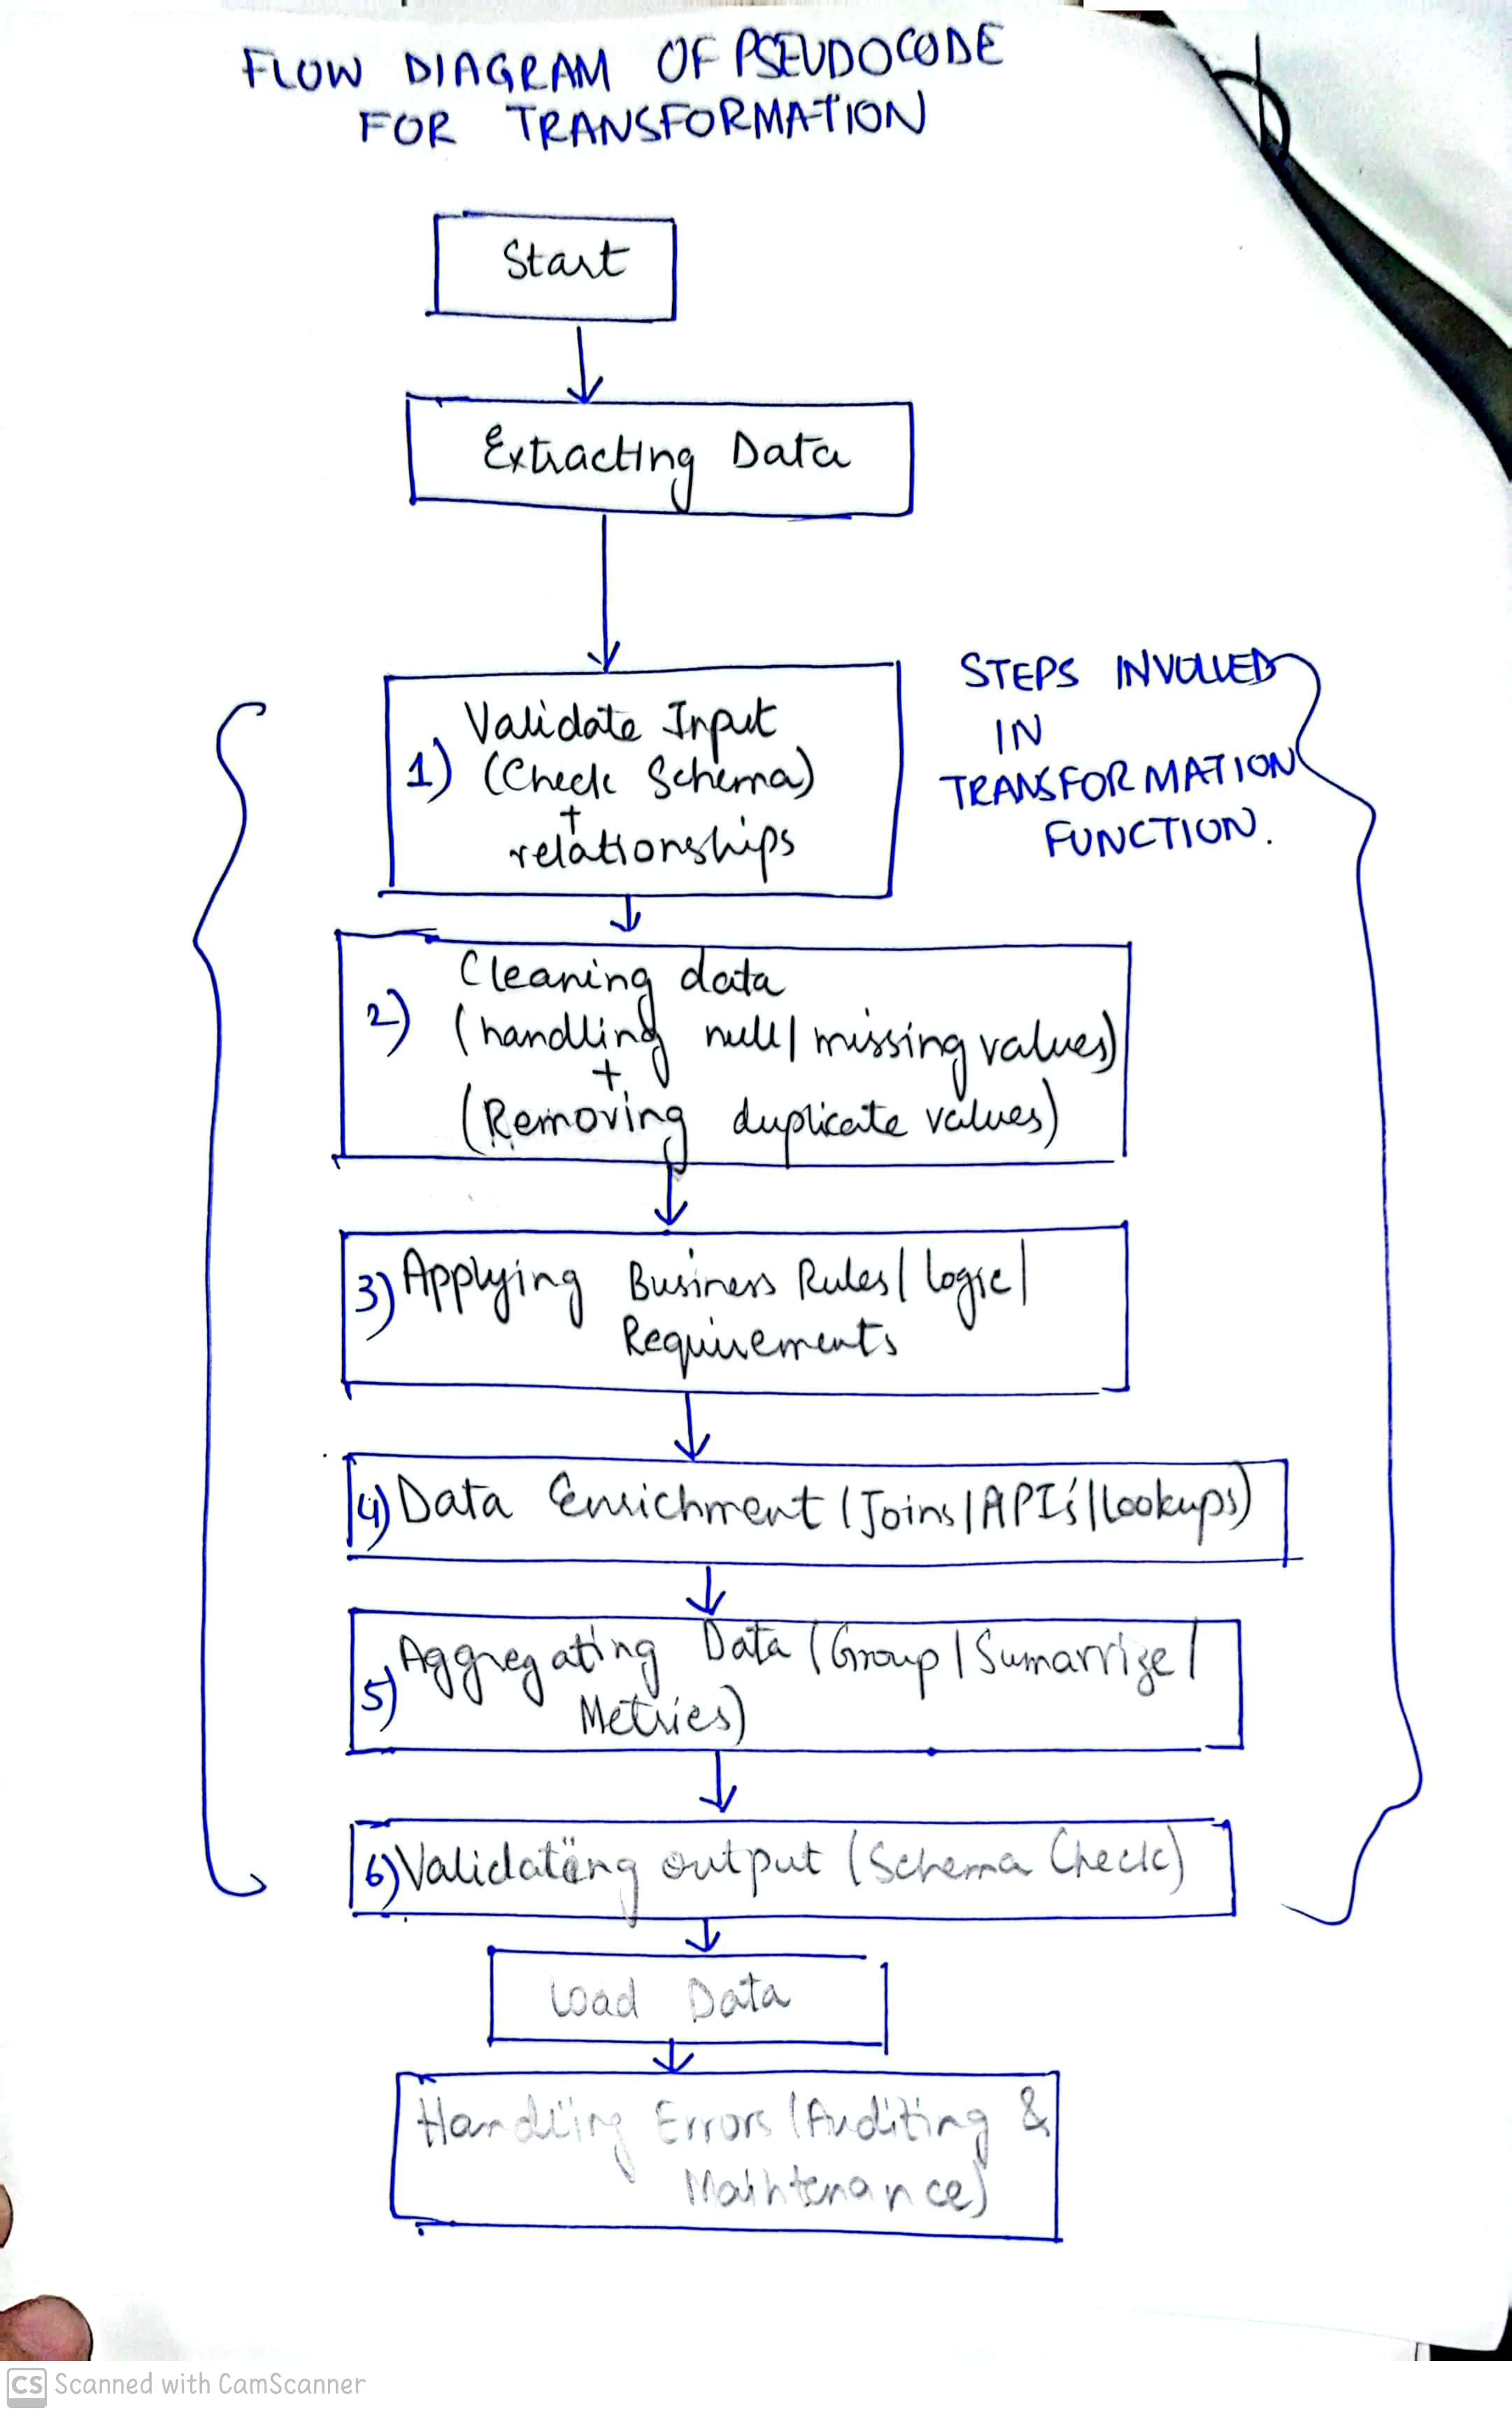 FLOW DIAGRAM OF PSEUDOCODE
FOR TRANSFORMATION
Start
Extracting Data
STEPS INVOLVED
IN
TRANSFORMATION
FUNCTION.
1) Validate Input
(Check Schema)
+
relationships
2) Cleaning data
(handling null/missing values)
+
(Removing duplicate values)
3) Applying Business Rules/logic/
Requirements
4) Data Enrichment (Joins/API's/Lookups)
5) Aggregating Data (Group/Sumarrize/
Metrics)
6) Validating output (Schema Check)
Load Data
Handling Errors (Auditing &
Maintenance)
CS Scanned with CamScanner